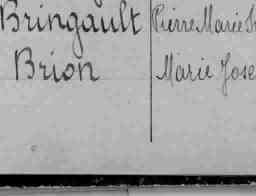 Bringault Pierre Marie
Brion Marie Jose